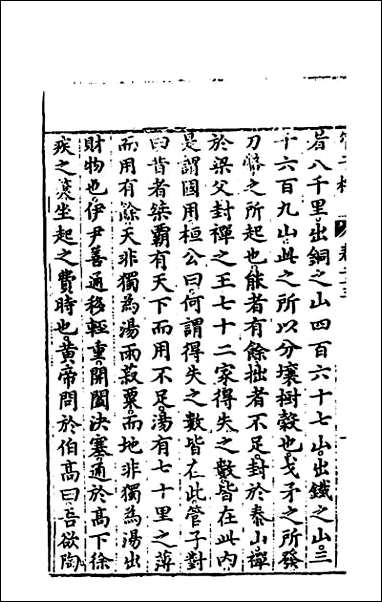 者八千里出銅之山四百六十七山出鐵之山三
千六百九山此之所以分壤樹穀也戈矛之所發
刀幣之所起也能者有餘拙者不足封於泰山禪
於梁父封禪之王七十二家得失之數皆在此内
是謂國用桓公曰何謂得失之數皆在此管子對
曰昔者桀霸有天下而用不足湯有七十里之薄
而用有餘天非獨為湯雨菽粟而地非獨為湯出
財物也伊尹善通移輕重開闔決塞通於高下徐
疾之筴坐起之費時也黄帝問於伯高曰吾欲陶